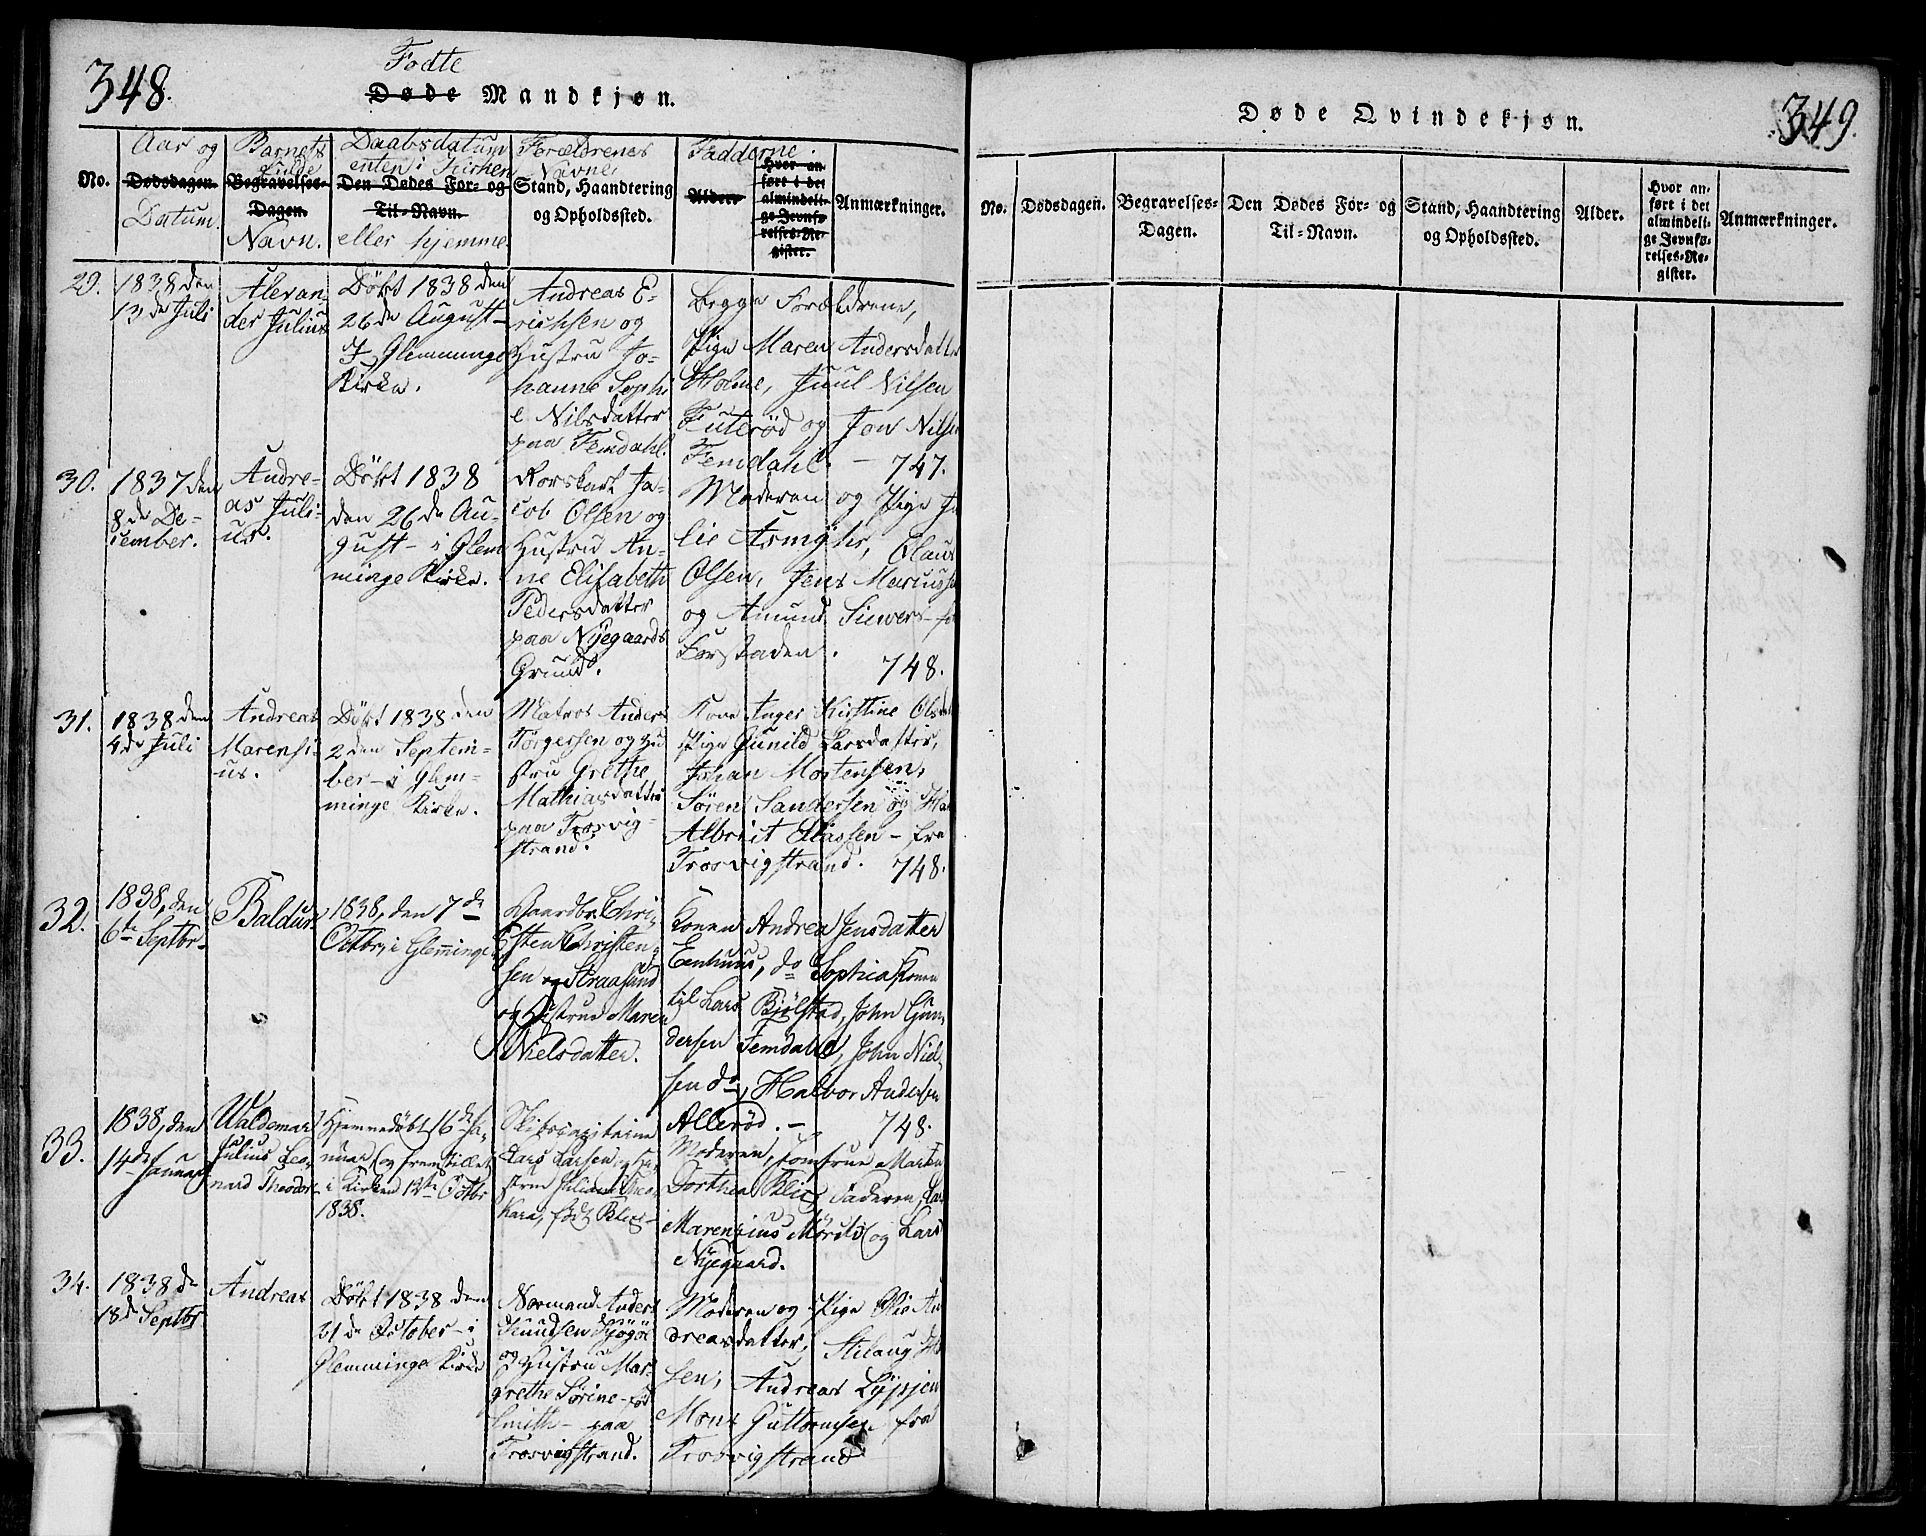 348.
Fodte
Døde Mandkjøn.
No.
Aar og
Dødsdagen.
Datum.
Barnets
fulde
Begravelses-
Dagen.
Navn.
Daabsdatum
enten i Kirken
Den Dødes For- og
Til-Navn.
eller hjemme.
Forældrenes
Navne,
Stand, Haandtering
og Opholdssted.
Fadderne.
Alder.
Hvor an-
ført i det
almindeli-
ge Jevnfø-
relses-Re-
gister.
Anmærkninger.
29.
1838 den
13de Juli
Alexan-
der Julius
Døbt 1838 den
26de August-
I Glemminge
Kirke.
Andreas E-
richsen og
Hustru Jo-
hanne Sophi
e Nilsdatter
paa Femdahl.
Begge Forældrene,
Pige Maren Andersdatter
Holme, Juul Nilsen
Tuterød og Jon Nilsen
Femdahl. - 747.
30.
1837 den
8de De-
cember.
Andre-
as Juli-
us.
Døbt 1838
den 26de Au-
gust - i Glem
minge Kirke.
Rorskarl Ja-
cob Olsen og
Hustru An-
ne Elisabeth
Pedersdatter
paa Nyegaards
Grund.
Moderen og Pige Ju
lie Asmyhr, Olaus
Olsen, Jens Mariussen
og Amund Siewers - fra
Forstaden.
748.
31.
1838 den
4de Juli
Andreas
Marensi-
us.
Døbt 1838 den
2den Septem-
ber - i Glem-
minge Kirke.
Matros Anders
Torgersen og Hu
stru Grethe
Mathiasdatter
paa Trosvig-
strand.
Kone Inger Kirstine Olsdat
Pige Gunild Larsdatter,
Johan Mortensen,
Søren Sandersen og
Albrict Eliassen - fra
Trosvigstrand. 748.
32.
1838, den
6te Septbr
Baldur
1838, den 7de
Octbr, i Glemminge
Gaardbr. Chri-
sten Christen-
sen Straasund
og Hustrue Maren
Nielsdatter.
Konen Andrea Jensdatter
Eenhuus, do Sophia Konen
til Lars Bjølstad, John Gun-
dersen Femdahl, John Niel-
sen do, Halvor Andersen
Allerød. - 748.
33.
1838, den
14de Januar
Waldemar
Julius Leo-
nard Theodor
Hjemmedøbt 16de Ja-
nuar (og fremstillet
i Kirken 12te Octbr
1838.
Skibscapitaine
Lars Larsen og Hu-
strue Juliane
født Blix
Moderen, Jomfrue Maren
Dorthea Blix, Faderen,
Marenzius Mørds og Lars
Nyegaard.
34.
1838 de
18de Septbr
Andreas
Døbt 1838 den
21de October - i
Glemminge Kirke
Normand Anders
Knudsen
og Hustru Mar-
grethe Sørine - fød
Smith - paa
Trosvigstrand.
Moderen og Pige Olie An
dreasdatter, Stilaug
sen, Andreas
Mons Guttormsen fra
Trosvigstrand
349.
Døde Qvindekjøn.
No.
Dødsdagen.
Begravelses-
Dagen.
Den Dødes For- og
Til-Navn.
Stand, Haandtering
og Opholdssted.
Alder.
Hvor an-
ført i det
almindeli-
ge Jevnfø-
relses-Re-
gister.
Anmærkninger.